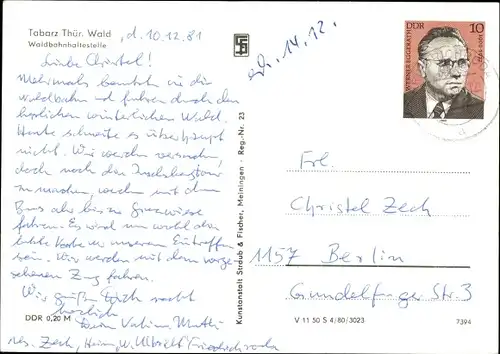 Tabarz Thür. Wald
Waldbahnhaltestelle
, d. 10.12.81
Liebe Christel!
Mehrmals benutzten wir die
Waldbahn und fuhren durch den
herrlichen winterlichen Wald.
Heute schneite es überhaupt
nicht. Wir werden versuchen,
doch noch den Inselsbergtour
zu machen, werden mit dem
Bus aber bis zur Grenzwiese
fahren. Es wird nun wohl die
letzte Karte vor unserem Eintreffen
sein. Wir werden mit dem vorge-
sehenen Zug fahren.
Wir grüßen Dich recht
herzlich
Dein Vati u. Mutti
DDR 0,20 M
Abs. Zech, Heim W. Ulbricht Friedrichroda
Kunstanstalt Straub & Fischer, Meiningen · Reg.-Nr. 23
erh. 14.12.
WERNER EGGERATH
DDR
10
1900-1977
Frl.
Christel Zech
1157 Berlin
Gundelfinger Str. 3
V 11 50 S 4/80/3023
7394